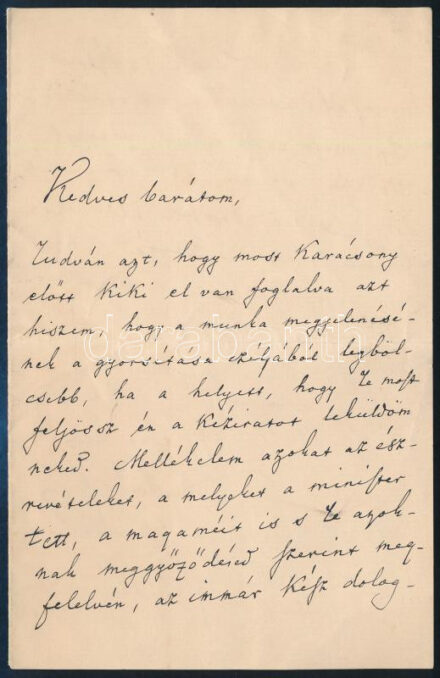 Kedves barátom,
Tudván azt, hogy most Karácsony
előtt kiki el van foglalva azt
hiszem, hogy a munka megjelenésé-
nek a gyorsítása czéljából legböl-
csebb, ha a helyett, hogy Te most
feljössz én a kéziratot leküldöm
neked. Mellékelem azokat az ész-
revételeket, a melyeket a minister
tett, a magaméit is s Te azok-
nak meggyőződésed szerint meg-
felelvén, az immár kész dolog-
darabanth